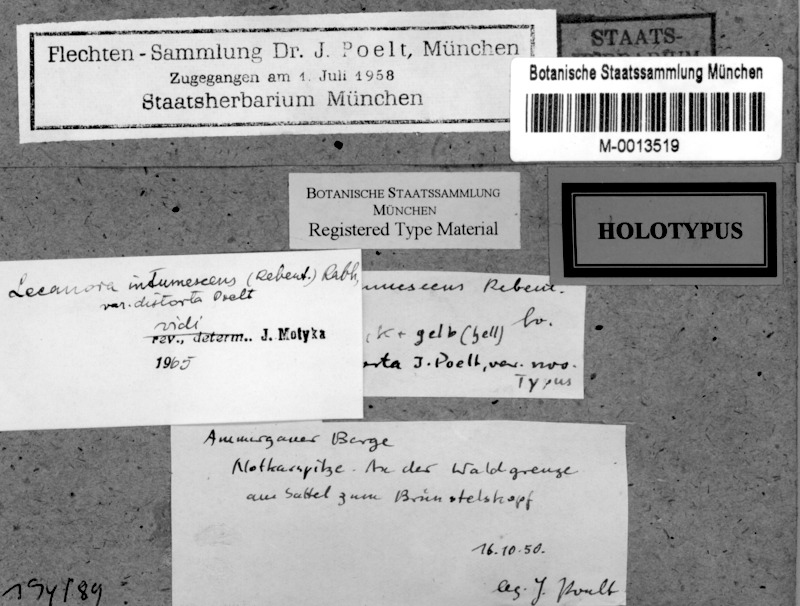 Flechten-Sammlung Dr. J. Poelt, München
Zugegangen am 1. Juli 1958
Staatsherbarium München
STAATS-
Botanische Staatssammlung München
M-0013519
BOTANISCHE STAATSSAMMLUNG
MÜNCHEN
Registered Type Material
HOLOTYPUS
Lecanora intumescens (Rebent.) Rabh.
var. distorta Poelt
vidi
rev., determ.. J. Motyka
1965
mescens Rebent.
K + gelb (hell)
rta J. Poelt, var. nov.
Typus
Ammergauer Berge
Notkarspitze. An der Waldgrenze
am Sattel zum Brünstelskopf
16.10.50.
leg. J. Poelt
194/89